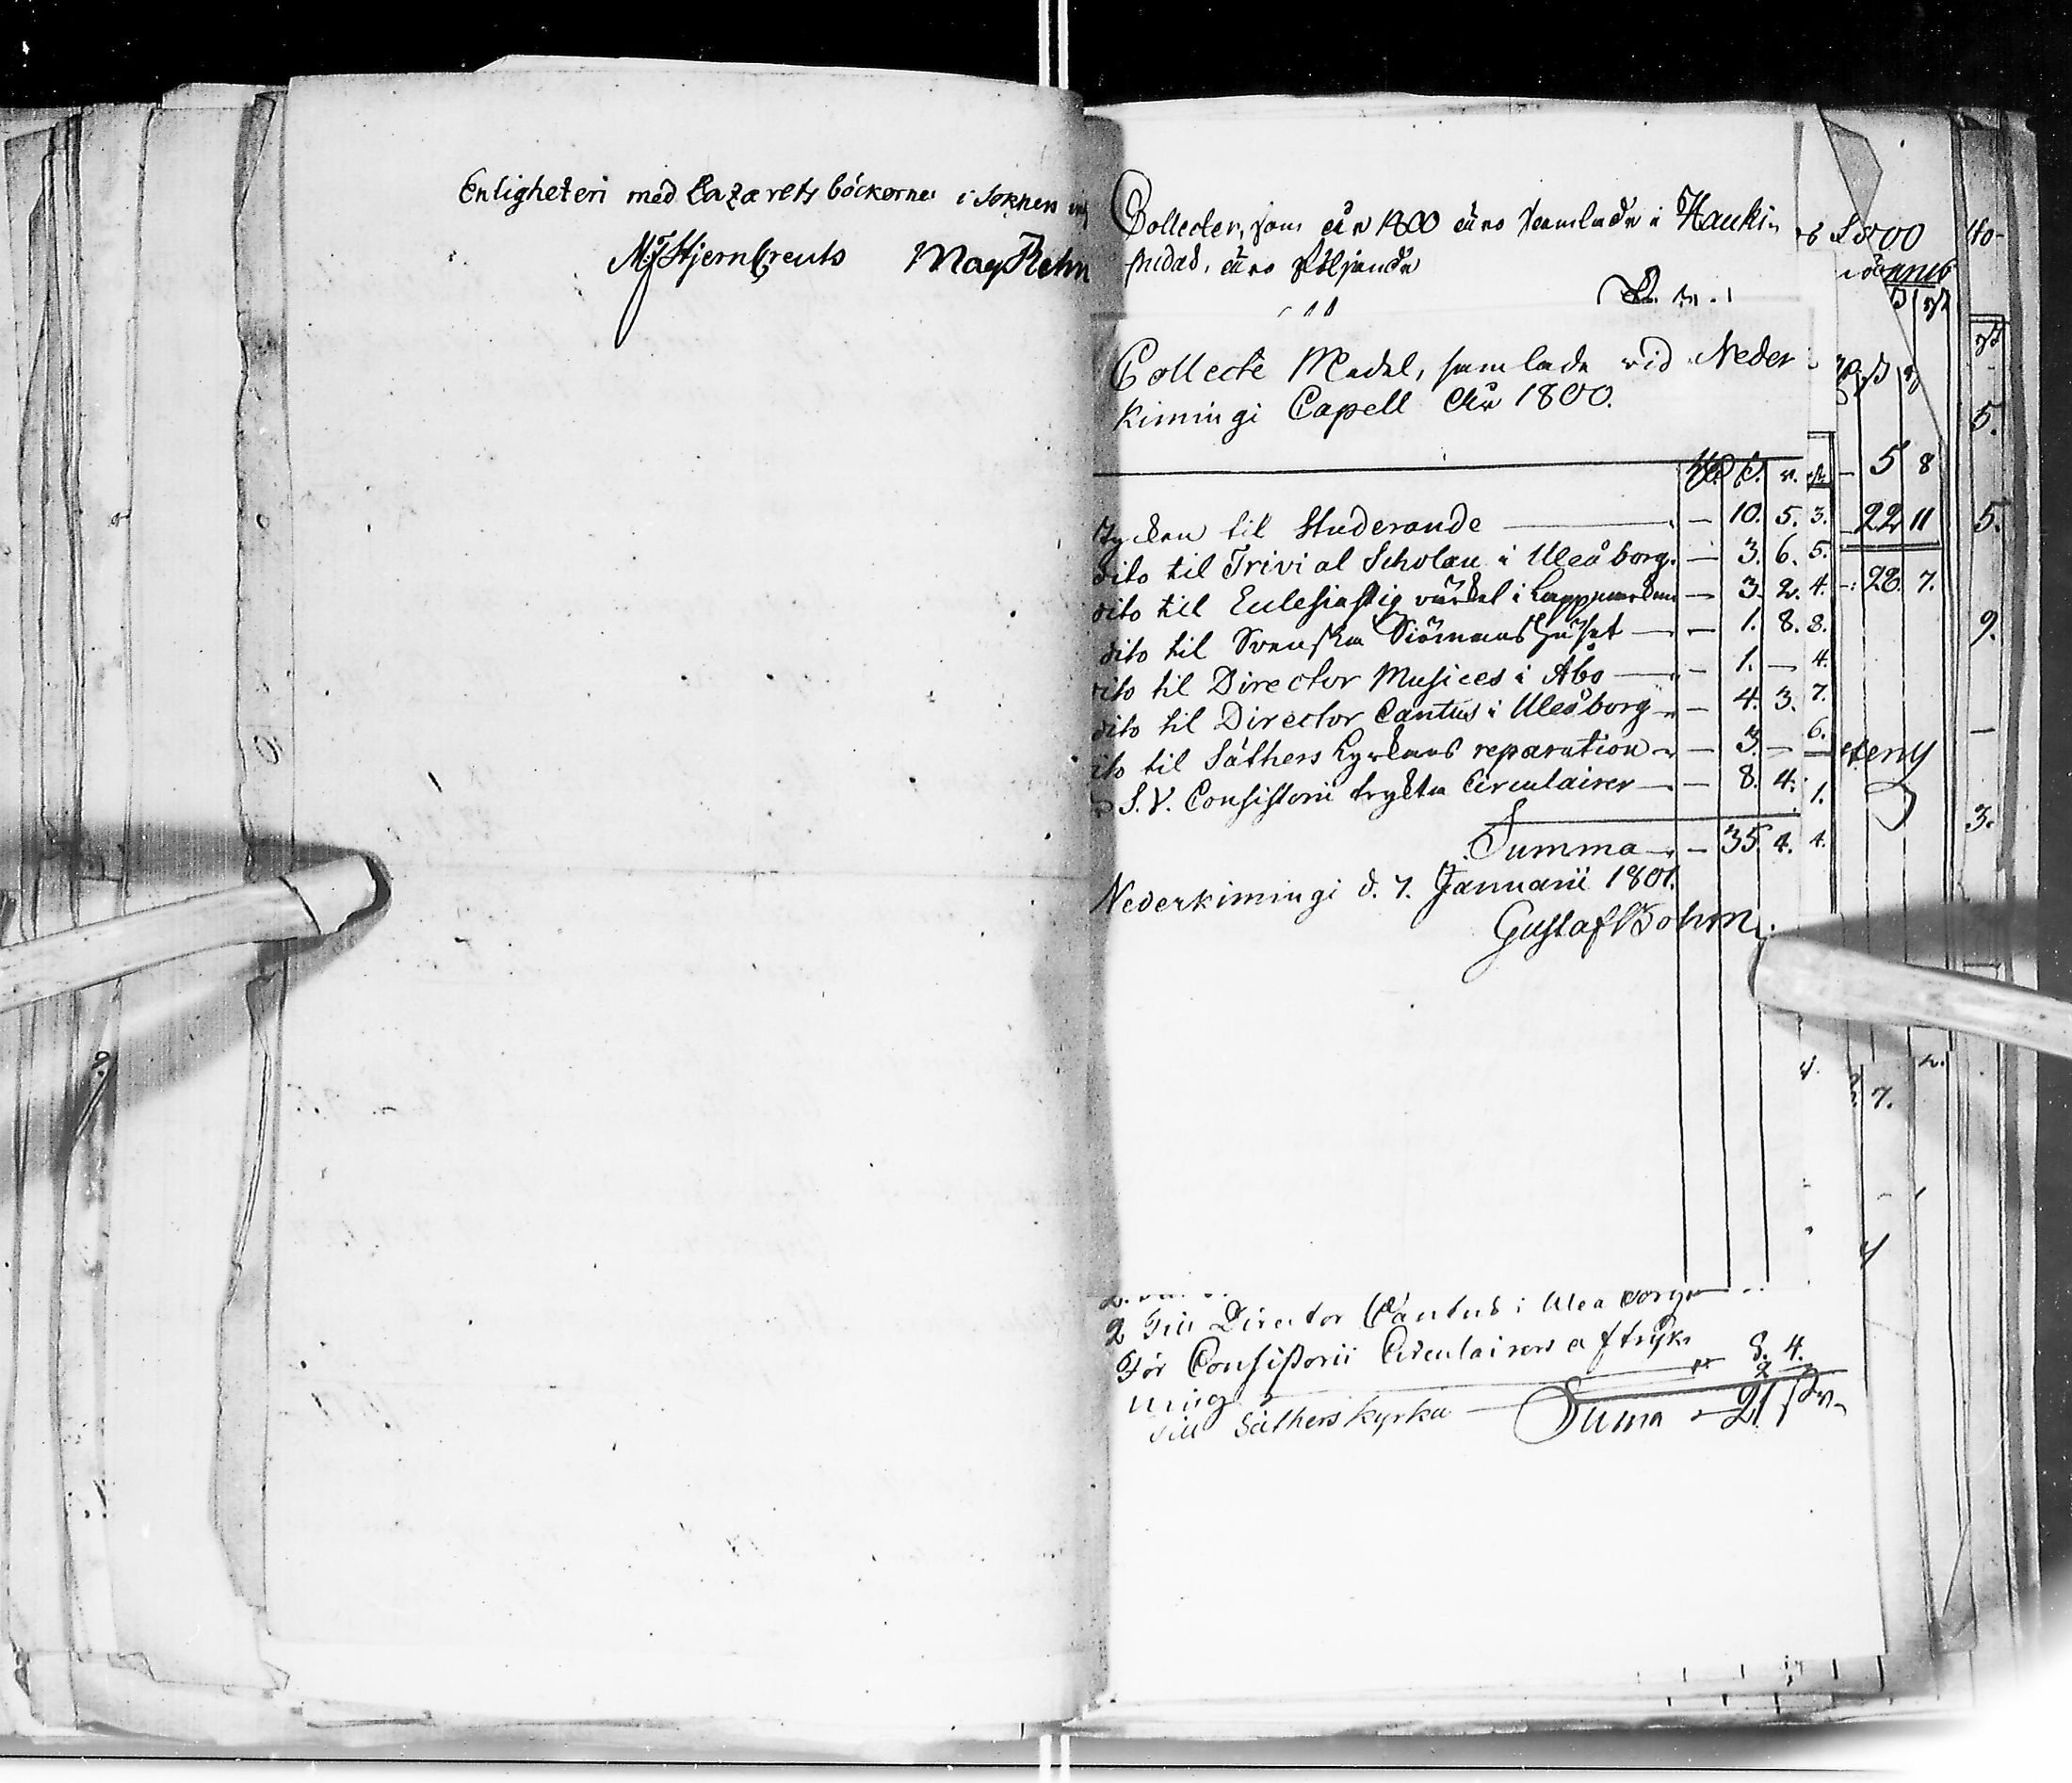 Enligheten med Lazarets böckerne i Soknen
M: Hjernkreuts May Rehn
Collecter, som år 1800 äro samlade i Hauki-
pudas, äro följande
Collecte Medel, samlade vid Neder
Kimingi Capell År 1800.
til Studerande — 10. 5.
dito til Trivial Scholan i Uleåborg. — 3. 6.
dito til Eclesiastig värket i Lappmarken — 3. 2.
dito til Svenska Siömans huset — 1. 8.
dito til Director Musices i Abo — 1. —
dito til Director Cantus i Uleåborg — 4. 3.
dito til Säthers Kyrkans reparation — 3. —
S. V. Consistorii tryckta Circulairer — 8. 4.
Summa — 35. 4.
Nederkimingi d. 7. Januarii 1801.
Gustaf Bohm.
3.
5.
4.
8.
4.
7.
6.
1.
4.
1800
5 8
22 11
28. 7.
5.
5.
9.
—
3.
7.
Till Director Cantus i Uleaborg
För Consistorii Circulairers aftryk-
ning 8. 4.
till Säthers Kyrka 2
Suma 21